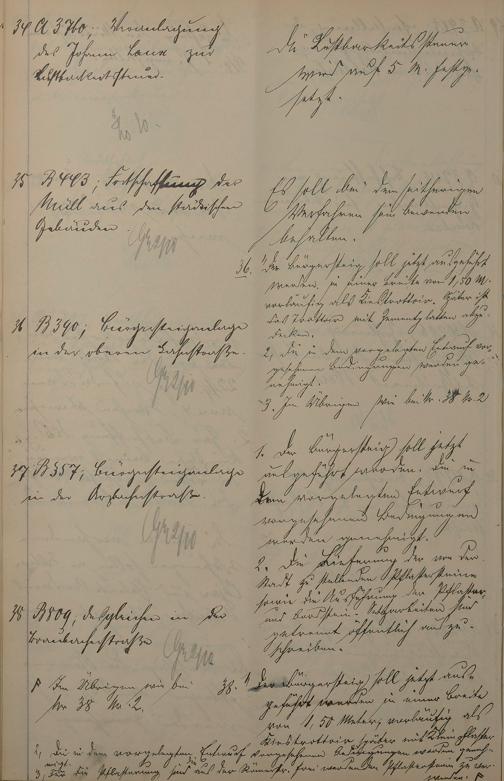 34 A 3760; Veranlagung
des Johann Lanx zur
Lustbarkeitssteuer.
Die Lustbarkeitssteuer
wird auf 5 M. festge-
setzt.
35 B 443; Fortschaffung des
Müll aus den städtischen
Gebäuden
Es soll bei dem seitherigen
Verfahren sein bewenden
behalten.
36 B 390; Bürgersteiganlage
in der oberen
36. 1, Der Bürgersteig soll jetzt ausgeführt
werden, in einer Breite von 1,50 M.
vorläufig als Kiestrottoir. Später ist
das Trottoir mit Zementplatten abzu-
decken.
2, die in dem vorgelegten Entwurf vor-
gesehenen Bedingungen werden ge-
nehmigt.
3. Im Übrigen wie bei Nr. 38 No. 2
37 B 357; Bürgersteiganlage
in der
1. Der Bürgersteig soll jetzt
ausgeführt werden. Die in
dem vorgelegten Entwurf
vorgesehenen Bedingungen
werden genehmigt.
2. Die Lieferung der von der
Stadt zu stellenden Pflastersteine
sowie die Ausführung der Pflaster
und Bordstein-Setzarbeiten sind
getrennt öffentlich auszu-
schreiben.
38 B 809, desgleichen in der
Braubacherstraße
Im Übrigen wie bei
Nr 38 No. 2.
38. 1, Der Bürgersteig soll jetzt aus-
geführt werden in einer Breite
von 1,50 Meter, vorläufig als
Kiestrottoir später mit Kleinpflaster
2, die in dem vorgelegten Entwurf vorgesehenen Bedingungen werden geneh-
migt.
3, Für die Pflasterung sind die aus der freiwerdenden Pflastersteine zu ver-
wenden.